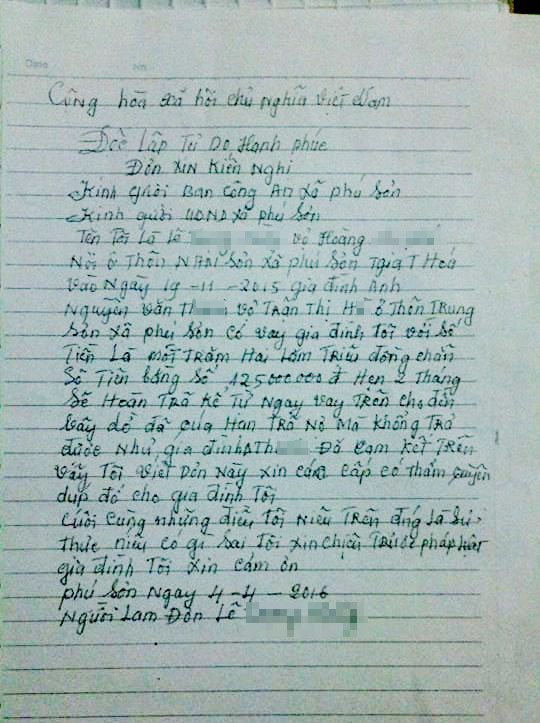 Date No
Công hòa xã hôi chủ nghĩa việt Nam
Đôc lâp Tự Do Hạnh phúc
Đơn xin Kiến Nghi
Kính gưởi Ban công An xã phú sơn
Kính gưởi UBND xã phú sơn
Tên Tôi là Lê vợ Hoàng
Nơi ở Thôn NAM sơn xã phú sơn Tgia T Hoá
vào Ngày 19 - 11 - 2015 gia đình Anh
Nguyễn văn Th vợ Trần Thi H ở Thôn Trung
sơn xã phú sơn có vay gia đình Tôi với số
Tiền Là môt Trăm Hai Lăm Triệu đồng chẵn
Số Tiền bằng số 125000.000 đ Hẹn 2 Tháng
sẽ Hoàn Trả kể Từ Ngay vay Trên cho đến
bây dờ đã quá Hạn Trả Nợ Mà không Trả
được Như gia đình A Th Đã Cam kết Trên
vây Tôi viết Đơn Nầy xin các cấp có thẩm quyền
dup đỡ cho gia đình Tôi
Cuối cùng những điều Tôi Niêu Trên đúng Là Sự
thực niếu có gì sai Tôi xin chiệu Trước pháp luật
gia đình Tôi xin cảm ơn
phú sơn Ngay 4 - 4 - 2016
Người Làm Đơn Lê